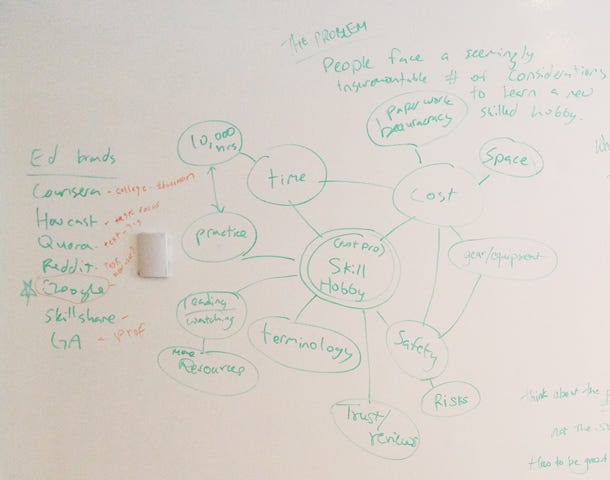 THE PROBLEM
People face a seemingly
insurmountable # of considerations
to learn a new
skilled hobby.
10,000
hrs
time
paperwork
Space
Cost
practice
(not pro)
Skill
Hobby
gear/equipment
reading
watching
more
Resources
terminology
Safety
Risks
Trust/
reviews
Ed brands
Coursera - college -
Howcast -
Quora -
Reddit -
Google
Skillshare -
GA - prof
think about the
not the
Has to be great